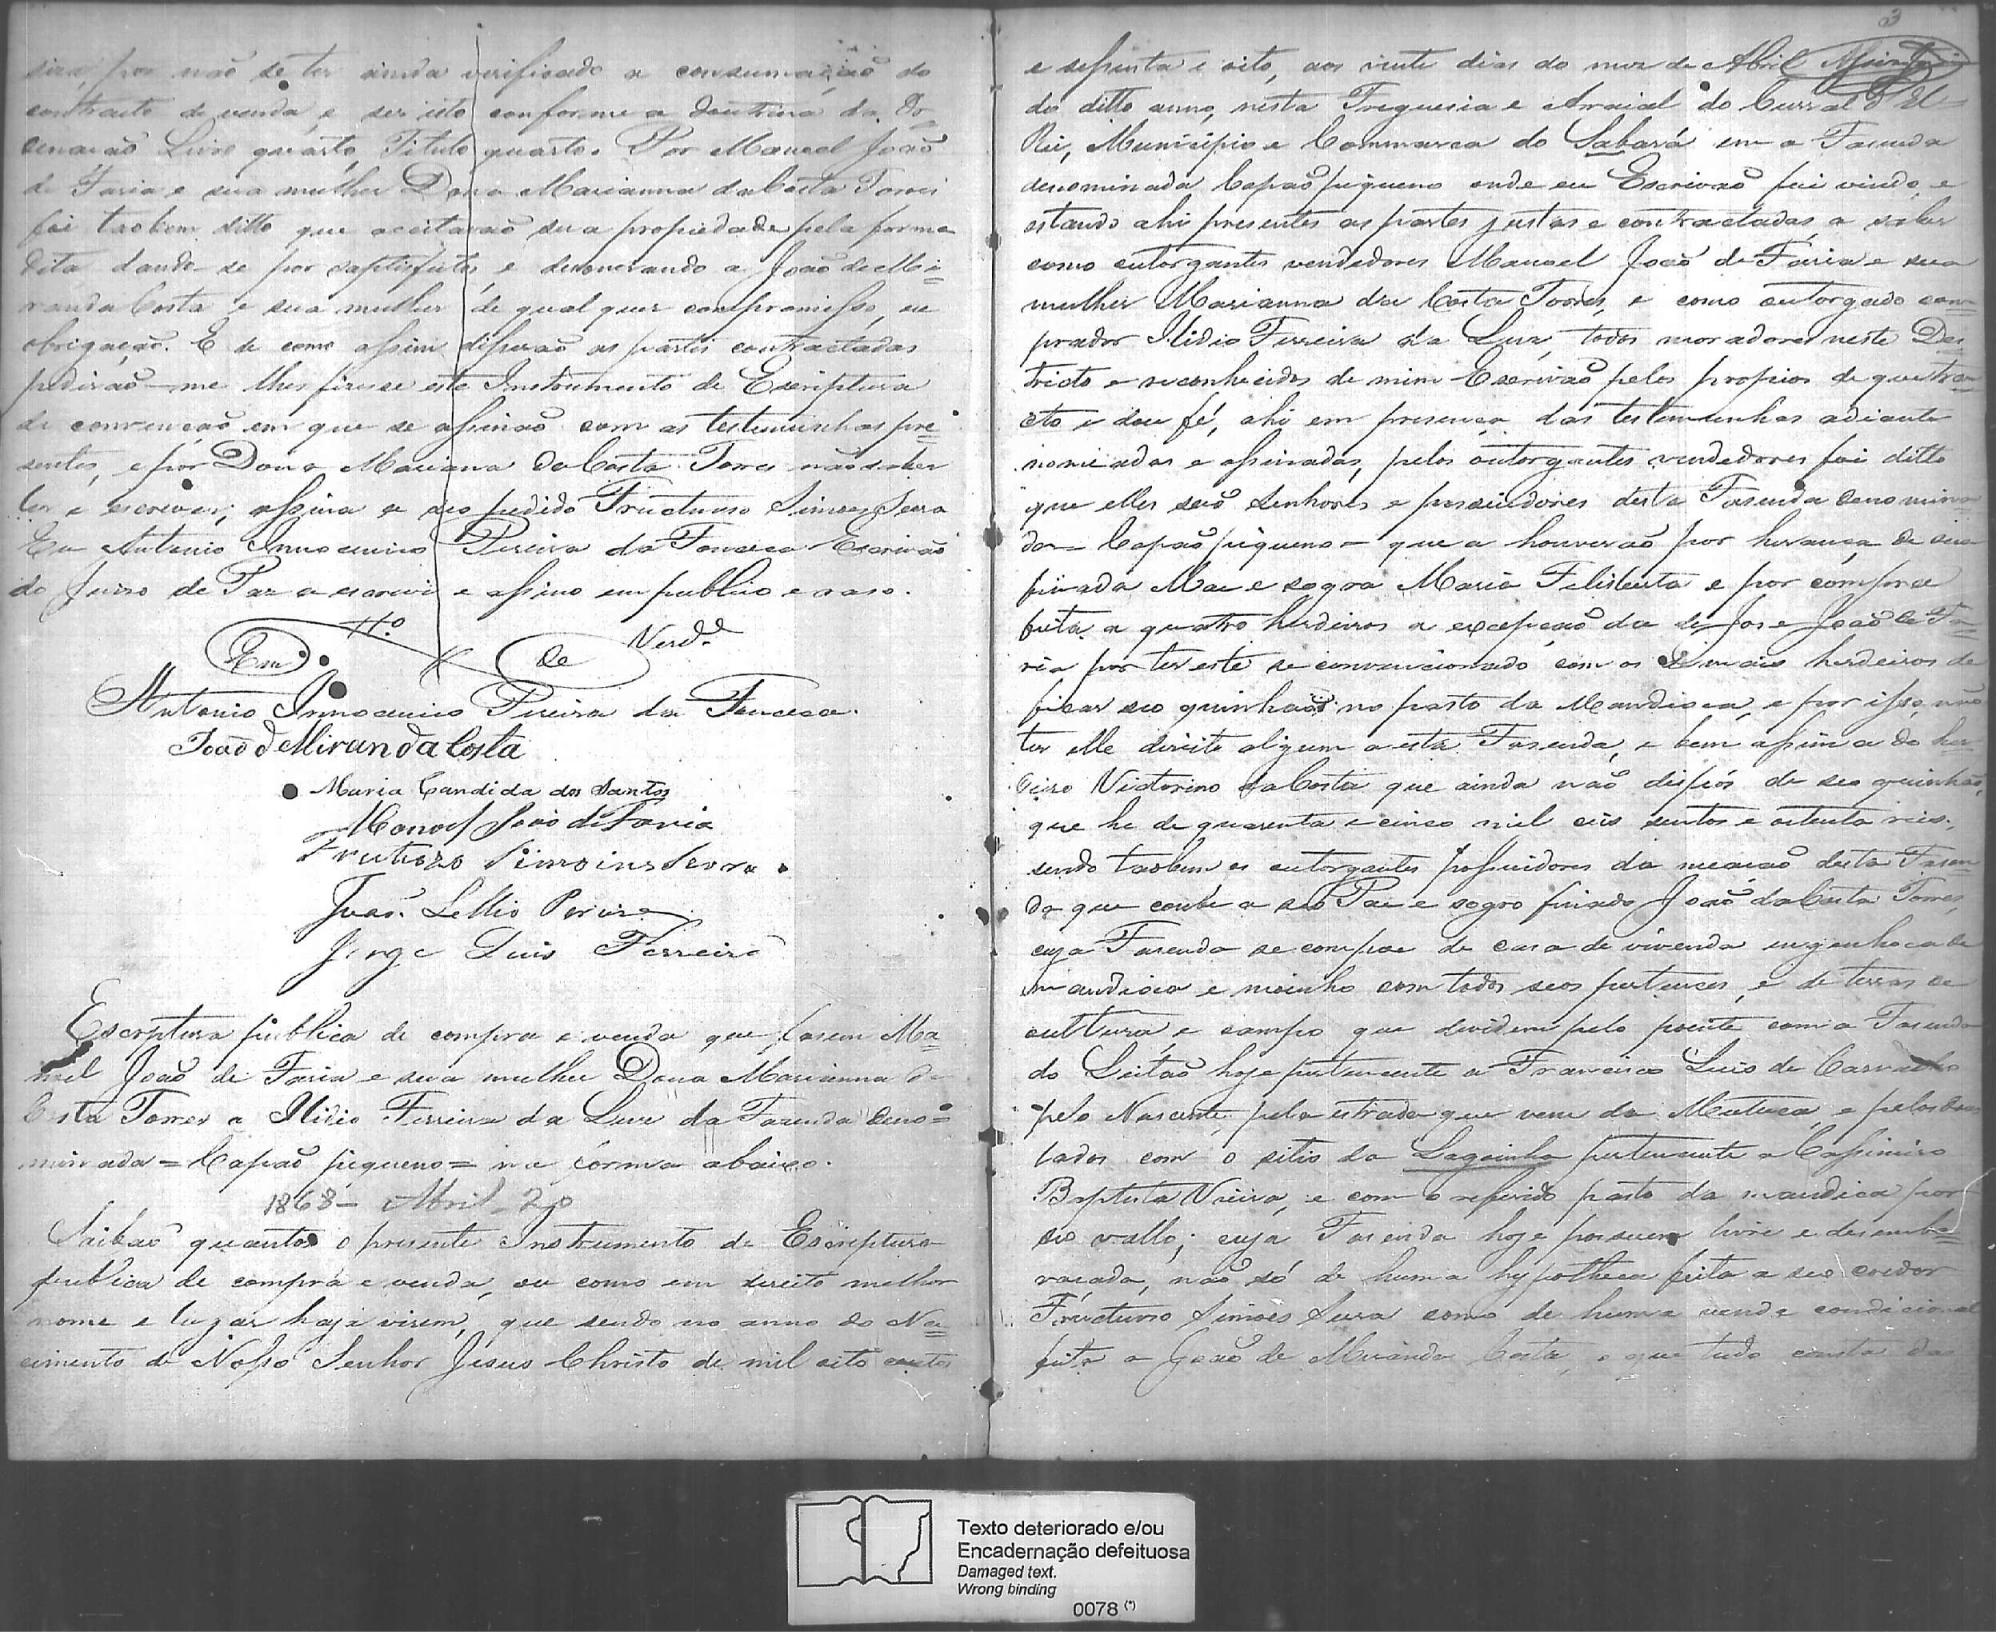 siza, por não se ter ainda verificado a consumação do
contracto de venda, e ser isto conforme a doutrina da Or=
denação Livro quarto, Titulo quarto. Por Manoel João
de Faria e sua mulher Dona Marianna da Costa Torres
foi taobem ditto que aceitavaõ sua propiedade pela forma
dita dando-se por satisfeitos, e desonerando a João de Mi=
randa Costa e sua mulher de qual quer compromisso, ou
obrigação. E de como assim disseraõ as partes contractadas
pediraõ-me lhes fizesse este Instrumento de Escriptura
de convenção em que se assinaõ com as testemunhas pre=
sentes, e por Dona Mariana da Costa Torres não saber
ler e escrever, assina a seo pedido Fructuoso Simoes Serra
Eu Antonio Innocencio Pereira da Fonseca Escrivaõ
do Juizo de Paz a escrevi e assino em publico e raso.
Em tt.o de Verd.e
Antonio Innocencio Pereira da Fonseca.
João d Miranda Costa
Maria Candida dos Santos
Manoel João de Faria
Frutuozo Simoins Serra
João Lellis Pereira
Jorge Luis Ferreira
Escriptura publica de compra e venda que fasem Ma=
noel João de Faria e sua mulher Dona Marianna da
Costa Torres a Ilidio Ferreira da Luz da Fazenda deno=
minada = Capaõ piqueno = na forma abaixo.
1868 - Abril - 20
Saibaõ quantos o presente Instrumento de Escriptura
publica de compra e venda, ou como em direito melhor
nome e lugar haja virem, que sendo no anno do Na=
cimento de Nosso Senhor Jesus Christo de mil oito centos
3
e sessenta e oito, aos vinte dias do mez de Abril
do ditto anno, nesta Freguesia e Arraial do Curral d'El=
Rei, Municipio e Commarca do Sabará em a Fazenda
denominada Capaõ piqueno onde eu Escrivaõ fui vindo, e
estando ahi presentes as partes justas e contractadas, a saber
como outorgantes vendedores Manoel João de Faria e sua
mulher Marianna da Costa Torres, e como outorgado com=
prador Ilidio Ferreira da Luz, todos moradores neste Des=
tricto e reconhecidos de mim Escrivaõ pelos propios de que tra=
cto e dou fé, ahi em presença das testemunhas adiante
nomeadas e assinadas, pelos outorgantes vendedores foi ditto
que elles saõ senhores e possuidores desta Fasenda denomina=
da = Capaõ piqueno = que a houveraõ por herança de sua
finada Mae e sogra Maria Felisberta e por compra
feita a quatro herdeiros a excepçaõ da de Jose João de Fa=
ria por ter este se convencionado com os Demais herdeiros de
ficar seo quinhaõ no pasto da Mandioca, e por isso naõ
ter elle direito algum a esta Fasenda, e bem assim a do her=
deiro Victorino da Costa que ainda naõ dispós de seo quinhaõ,
que he de quarenta e cinco mil seis sentos e oitenta reis,
sendo taobem os outorgantes possuidores da meaçaõ desta Fasen=
da que coube a seo Pae e sogro finado João da Costa Torres,
cuja Fasenda se compoe de casa de vivenda engenhoca de
mandioca e moinho com todos seos pertences, e de terras de
cultura, e campo que dividem pelo poente com a Fasenda
do Leitaõ hoje pertencente a Francisco Luis de Carvalho
pelo Nascente, pela estrada que vem da Mutuca, e pelos dois
lados com o sitio da Lagoinha pertencente a Cassimiro
Baptista Vieira, e com o referido pasto da mandioca por
seo vallo; cuja Fasenda hoje possuem livre e desemba=
raçada, naõ só de huma hypotheca feita a seo credor
Fructuoso Simoes Serra como de huma venda condicional
feita a João de Miranda Costa, o que tudo consta das
Texto deteriorado e/ou
Encadernação defeituosa
Damaged text.
Wrong binding
0078 (*)